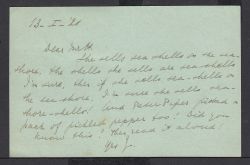 13-I-20
Dear Mr H
She sells sea-shells on the sea-
shore, the shells she sells are sea-shells
I'm sure, then if she sells sea-shells on
the sea-shore, I'm sure she sells sea-
shore-shells! And Peter Piper picked a
peck of pickled pepper too! Did you
know this? Then read it aloud!
Yrs J